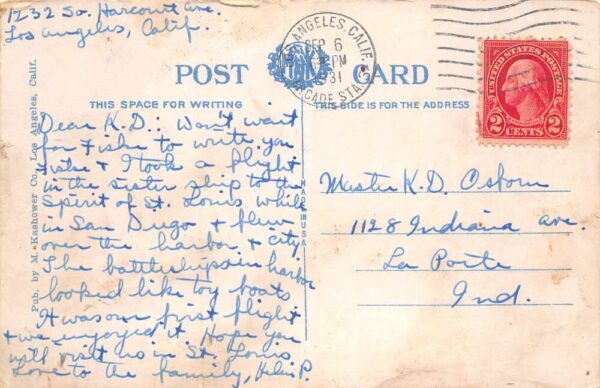 1232 So. Harcourt Ave.
Los Angeles, Calif.
LOS ANGELES, CALIF.
SEP 6
PM
1931
ARCADE STA.
POST CARD
UNITED STATES POSTAGE
2 CENTS 2
THIS SPACE FOR WRITING
THIS SIDE IS FOR THE ADDRESS
Pub. by M. Kashower Co., Los Angeles, Calif.
MADE IN U.S.A.
Dear K.D.: Won't wait
for Fishe to write you
Fishe & I took a flight
in the sister ship to the
Spirit of St. Louis while
in San Diego & flew
over the harbor & city.
The battleships in harbor
looked like toy boats
It was our first flight
& we enjoyed it Hope you
will visit us in St. Louis
Love to the family, Helen P.
Master K.D. Osborn
1128 Indiana Ave.
La Porte
Ind.